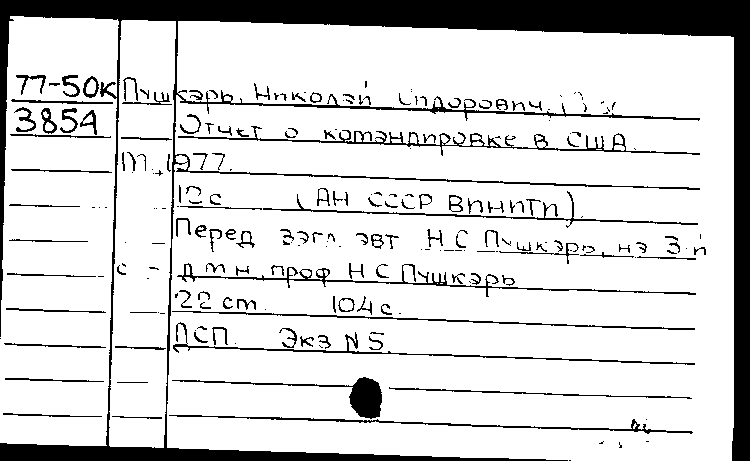 77-50к Пушкарь, Николай Сидорович,
3854 Отчет о командировке в США.
М., 1977.
12с. (АН СССР ВИНИТИ).
Перед загл. авт. Н С Пушкарь, на 3-й
с - дмн, проф Н С Пушкарь
22 см. 104с.
ДСП. Экз N5.